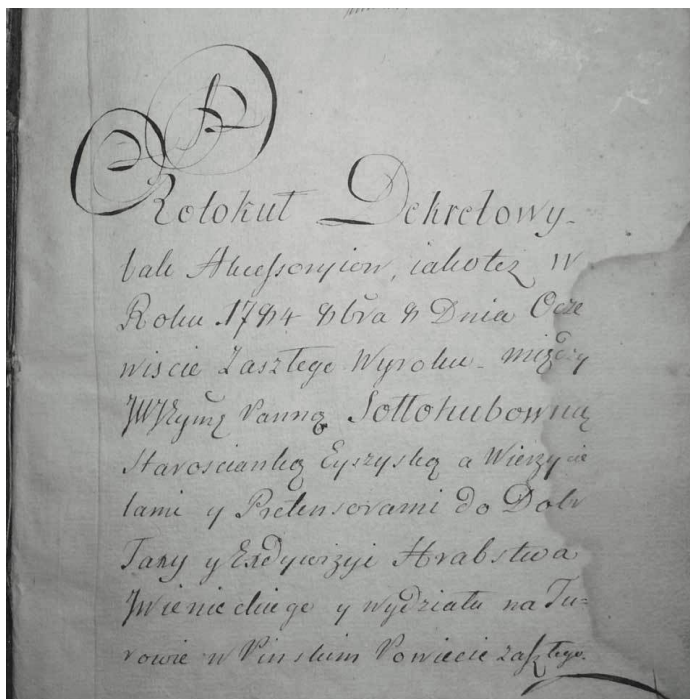 Protokuł Dekretowy
tak Akcessoryiow, iakoteż W
Roku 1794 8bra 8 Dnia Ocze
wiscie Zaszłego Wyroku między
JW JPymą Panną Sołłohubowną
Starościanką Eyszyską a Wierzycie
lami y Pretensorami do Dobr
Taxy y Exdywizyi Hrabstwa
Iwienieckiego y wydziału na Tu=
rowie w Pinskim Powiecie zaszłego.